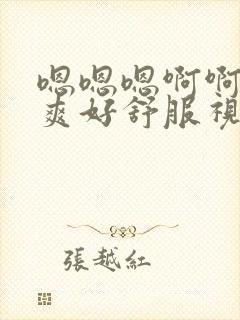 嗯嗯嗯啊啊
爽好舒服視
張越紅